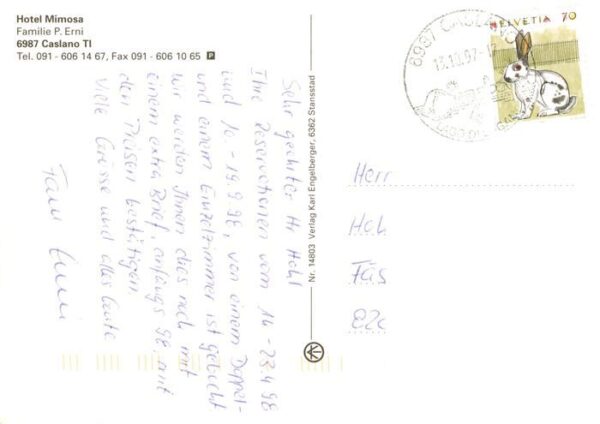 Hotel Mimosa
Familie P. Erni
6987 Caslano TI
Tel. 091 - 606 14 67, Fax 091 - 606 10 65 P
HELVETIA 70
6987 CASLANO
13.10.97-17
Sehr geehrter Hr Hohl
Ihre Reservationen vom 14-23.4.98
und 10.-19.9.98, von einem Doppel-
und einem Einzelzimmer ist gebucht
wir werden Ihnen dies noch mit
einem extra Brief, anfangs 98 mit
den Preisen bestätigen.
Viele Grüsse und alles Gute
Fam. Erni
Nr. 14803 Verlag Karl Engelberger, 6362 Stansstad
Herr
Hoh
Fäs